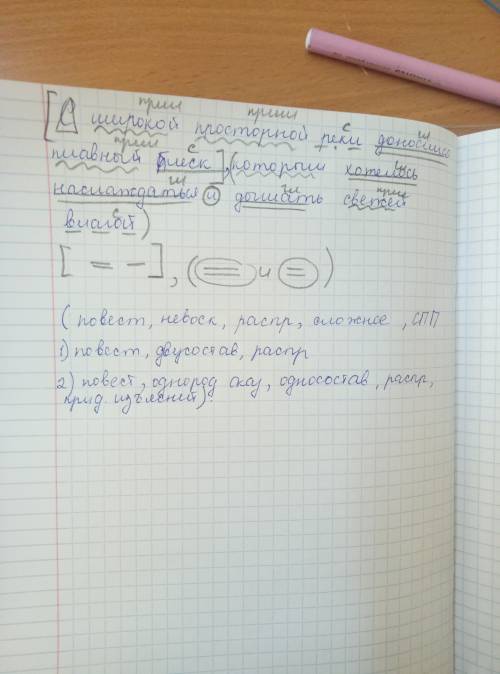 прил прил с гл
[С широкой просторной реки доносился
прил с гл
плавный плеск], (которым хотелось
гл гл прил
наслаждаться и дышать свежей
с
влагой)
[ = - ], ( = и = )
( повест, невоск, распр, сложное, СПП
1) повест, двусостав, распр
2) повест, однород сказ, односостав, распр,
прид изъяснит).